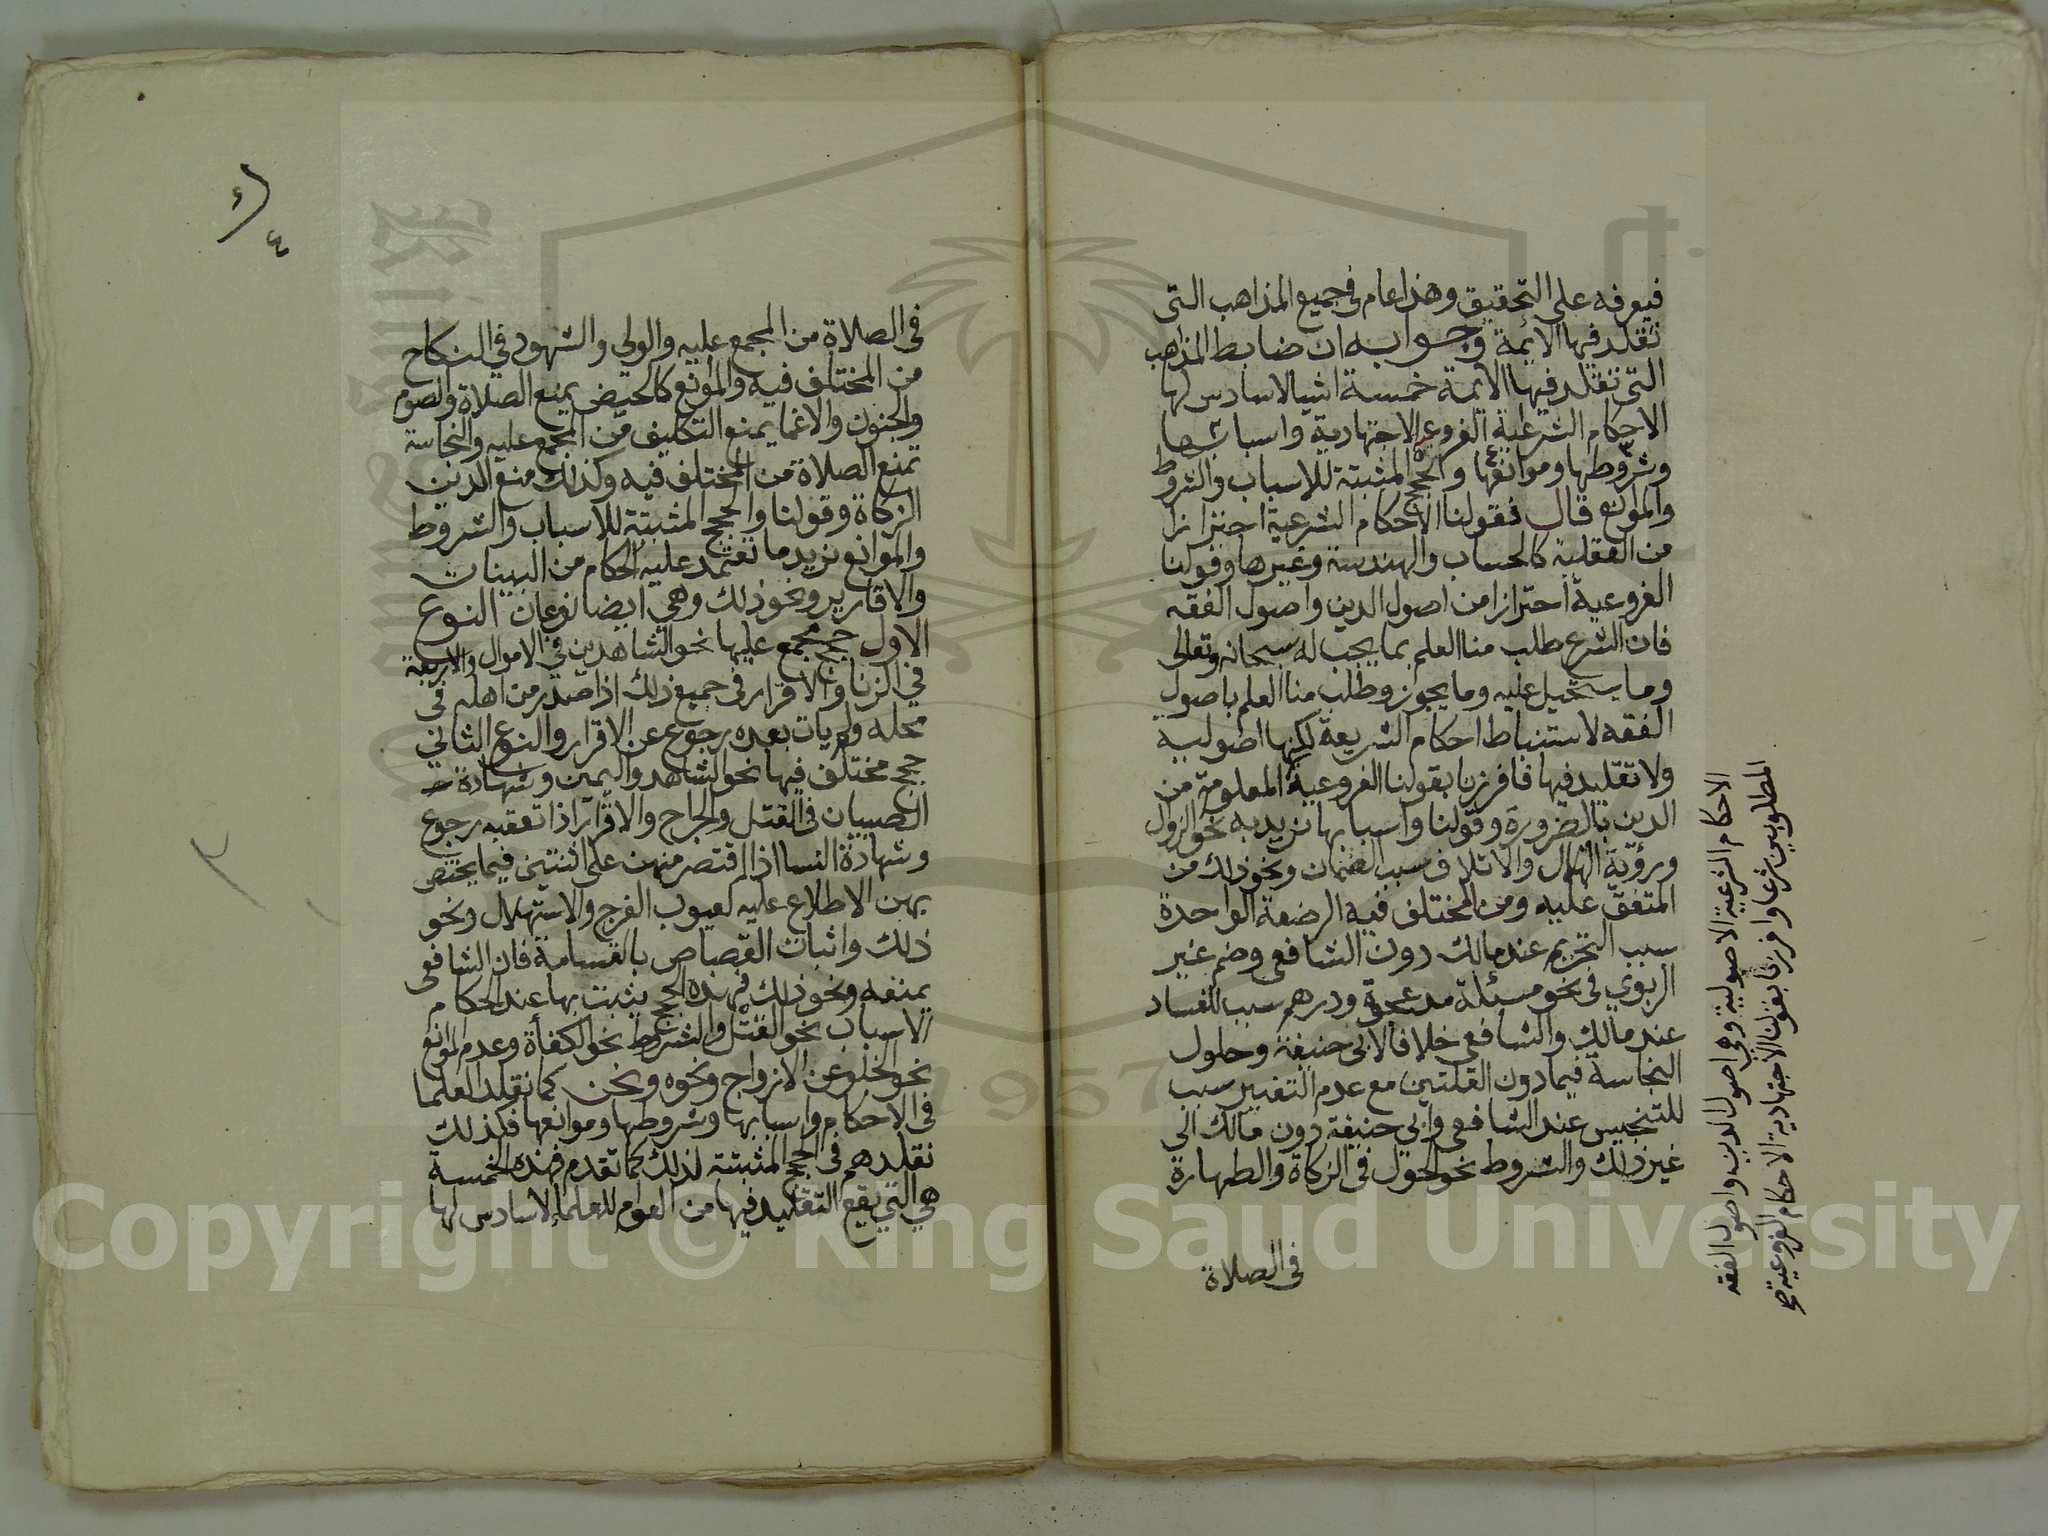 فيعرفه على التحقيق وهذا عام في جميع المذاهب التي
تقلد فيها الأيمة وجوابه ان ضابط المذاهب
التي تقلد فيها الأيمة خمسة اشيا لا سادس لها
الاحكام الشرعية الفروعية الاجتهادية واسبابها
وشروطها وموانعها والحجج المثبتة للاسباب والشروط
والموانع قال فقولنا الاحكام الشرعية احترازا
من العقلية كالحساب والهندسة وغيرها وقولنا
الفروعية احترازا من اصول الدين واصول الفقه
فان الشرع طلب منا العلم بما يجب له سبحانه وتعالى
وما يستحيل عليه وما يجوز وطلب منا العلم باصول
الفقه لاستنباط احكام الشريعة لكنها اصولية
ولا تقليد فيها فافرزنا بقولنا الفروعية المعلومة من
الدين بالضرورة وقولنا واسبابها نريد به نحو الزوال
ورؤية الهلال والاتلاف سبب الضمان ونحو ذلك من
المتفق عليه ومن المختلف فيه الرضعة الواحدة
سبب التحريم عند مالك دون الشافعي وضم غير
الربوي في نحو مسئلة مد عجوة ودرهم سبب للفساد
عند مالك والشافعي خلافا لابي حنيفة وحلول
النجاسة فيما دون القلتين مع عدم التغيير سبب
للتنجيس عند الشافعي وابي حنيفة دون مالك الى
غير ذلك والشروط نحو الحول في الزكاة والطهارة
في الصلاة
الاحكام الشرعية الاصولية وهي اصول الدين واصول الفقه
المطلوبين شرعا وافرزنا بقولنا الاجتهادية الاحكام الفروعية صح
٤
في الصلاة من المجمع عليه والولي والشهود في النكاح
من المختلف فيه والموانع كالحيض يمنع الصلاة والصوم
والجنون والاغما يمنع التكليف من المجمع عليه والنجاسة
تمنع الصلاة من المختلف فيه وكذلك منع الدين
الزكاة وقولنا والحجج المثبتة للاسباب والشروط
والموانع نريد ما تعتمد عليه الحكام من البينات
والاقارير ونحو ذلك وهي ايضا نوعان النوع
الاول حجج مجمع عليها نحو الشاهدين في الاموال والاربعة
في الزنا والاقرار في جميع ذلك اذا صدر من اهله في
محله ولم يات بعده رجوع عن الاقرار والنوع الثاني
حجج مختلف فيها نحو الشاهد واليمين وشهادة
الصبيان في القتل والجراح والاقرار اذا تعقبه رجوع
وشهادة النسا اذا اقتصر منهن على اثنتين فيما يختص
بهن الاطلاع عليه كعيوب الفرج والاستهلال ونحو
ذلك واثبات القصاص بالقسامة فان الشافعي
يمنعه ونحو ذلك فهذه الحجج يثبت بها عند الحكام
الاسباب نحو القتل والشروط نحو الكفأة وعدم الموانع
نحو الخلو عن الازواج ونحوه ونحن كما نقلد العلما
في الاحكام واسبابها وشروطها وموانعها فكذلك
نقلدهم في الحجج المثبتة لذلك كما تقدم فهذه الخمسة
هي التي يقع التقليد فيها من العوام للعلما لا سادس لها
1957
Copyright © King Saud University